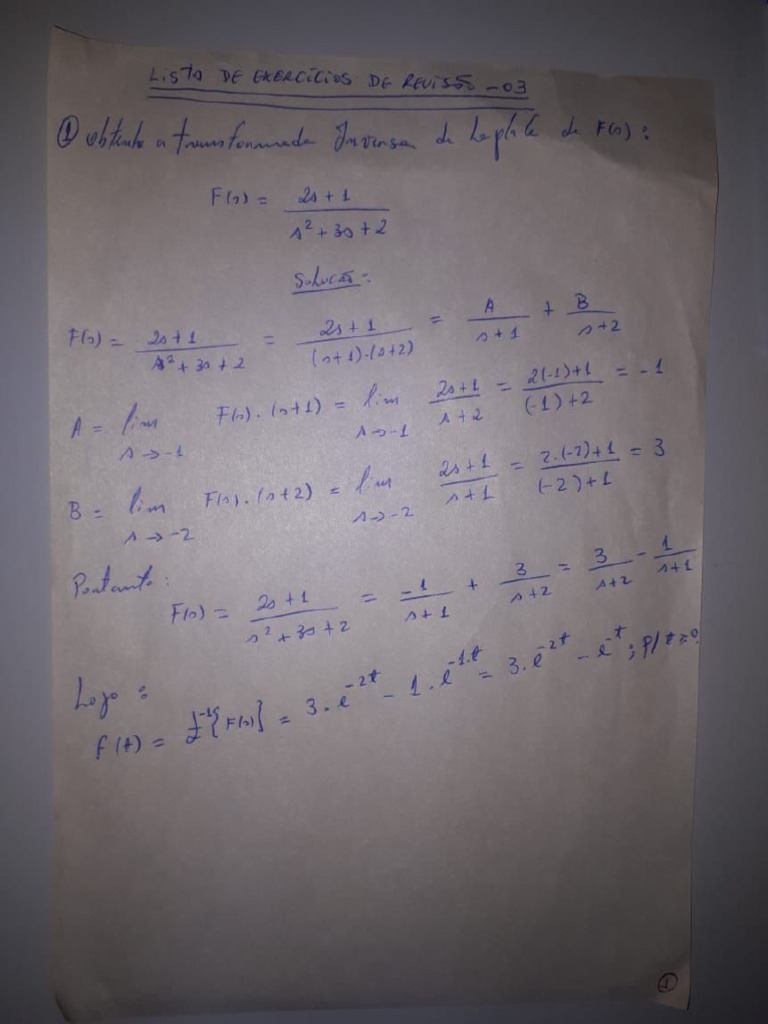 LISTA DE EXERCÍCIOS DE REVISÃO - 03
① Obtenha a transformada Inversa de Laplace de F(s):
F(s) = (2s + 1)/(s² + 3s + 2)
Solução:
F(s) = (2s + 1)/(s² + 3s + 2) = (2s + 1)/((s+1)·(s+2)) = A/(s+1) + B/(s+2)
A = lim s→-1 F(s)·(s+1) = lim s→-1 (2s+1)/(s+2) = (2(-1)+1)/((-1)+2) = -1
B = lim s→-2 F(s)·(s+2) = lim s→-2 (2s+1)/(s+1) = (2·(-2)+1)/((-2)+1) = 3
Portanto:
F(s) = (2s + 1)/(s² + 3s + 2) = -1/(s+1) + 3/(s+2) = 3/(s+2) - 1/(s+1)
Logo:
f(t) = ℒ⁻¹{F(s)} = 3·e^(-2t) - 1·e^(-1·t) = 3·e^(-2t) - e^(-t); p/ t≥0.
①